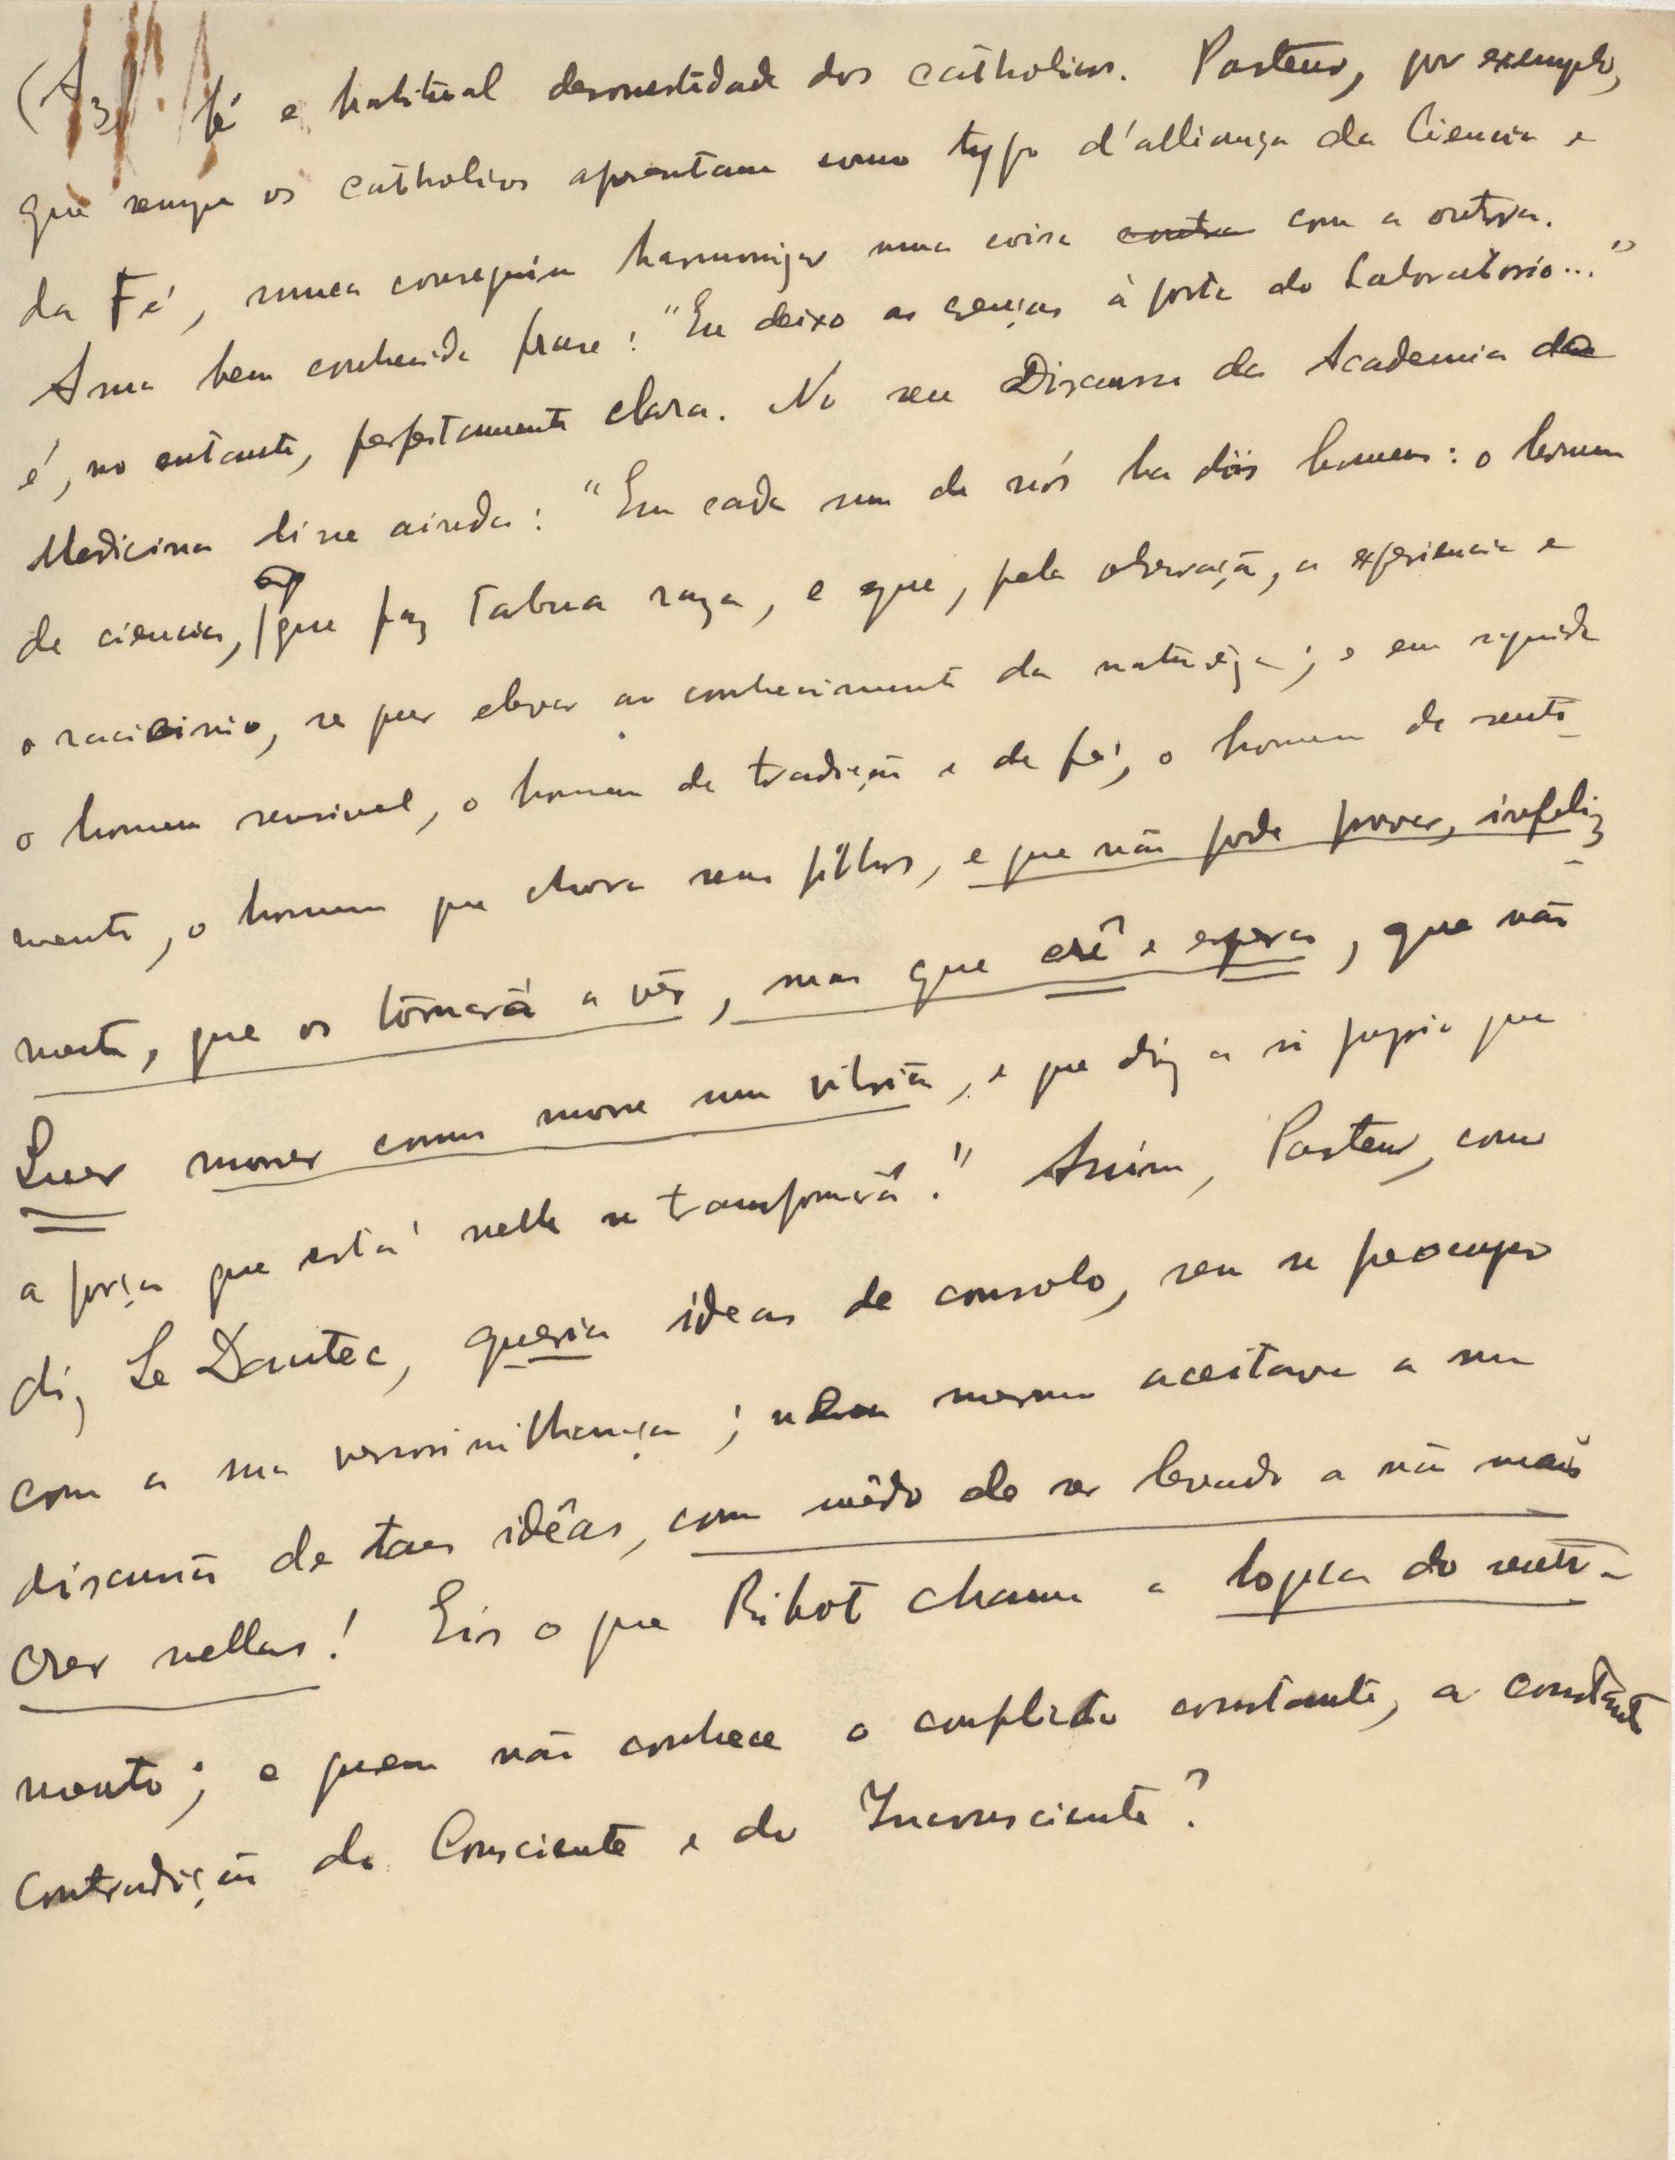 (A3) fé e habitual desonestidade dos catholicos. Pasteur, por exemplo,
que sempre os catholicos apresentam como typo d'alliança da Ciencia e
da Fé, nunca conseguiu harmonizar uma coisa contra com a outra.
A sua bem conhecida frase: "Eu deixo as crenças à porta do Laboratorio..."
é, no entanto, perfeitamente clara. No seu Discurso da Academia de
Medicina disse ainda: "Em cada um de nós ha dois homens: o homem
de ciencia, que faz tabua raza, e que, pela observação, a experiencia e
o raciocinio, se quer elevar ao conhecimento da natureza; e em seguida
o homem sensivel, o homem de tradição e de fé, o homem de senti-
mento, o homem que chora seus filhos, e que não pode provar, infeliz-
mente, que os tornará a vêr, mas que crê e espera, que não
Quer morrer como morre um vibrião, e que diz a si proprio que
a força que está nelle se transformará." Assim, Pasteur, como
diz Le Dantec, queria ideas de consolo, sem se preocupar
com a sua verosimilhança; nem mesmo aceitava a sua
discussão de taes idêas, com mêdo de ser levado a não mais
crer nellas! Eis o que Ribot chama a logica do senti-
mento; e quem não conhece o conflicto constante, a constante
contradição do Consciente e do Inconsciente?